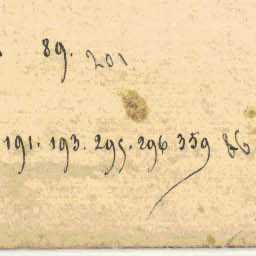 89. 201
191. 193. 295. 296 359 &c